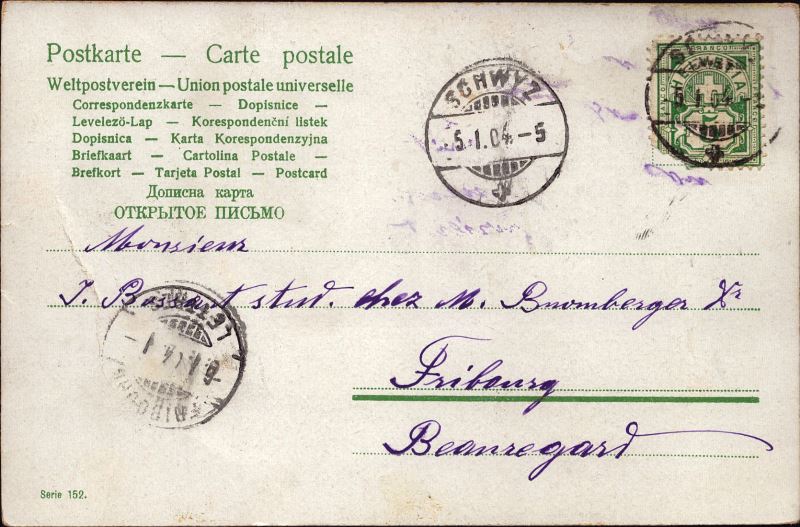 Postkarte — Carte postale
Weltpostverein — Union postale universelle
Correspondenzkarte — Dopisnice —
Levelező-Lap — Korespondenční listek
Dopisnica — Karta Korespondenzyjna
Briefkaart — Cartolina Postale —
Brefkort — Tarjeta Postal — Postcard
Дописна карта
ОТКРЫТОЕ ПИСЬМО
SCHWYZ
5.I.04.-5
FRANCO
HELVETIA
5.I.04.-
Monsieur
J. Bossart stud. chez M. Bromberger Xr
Fribourg
Beauregard
Serie 152.